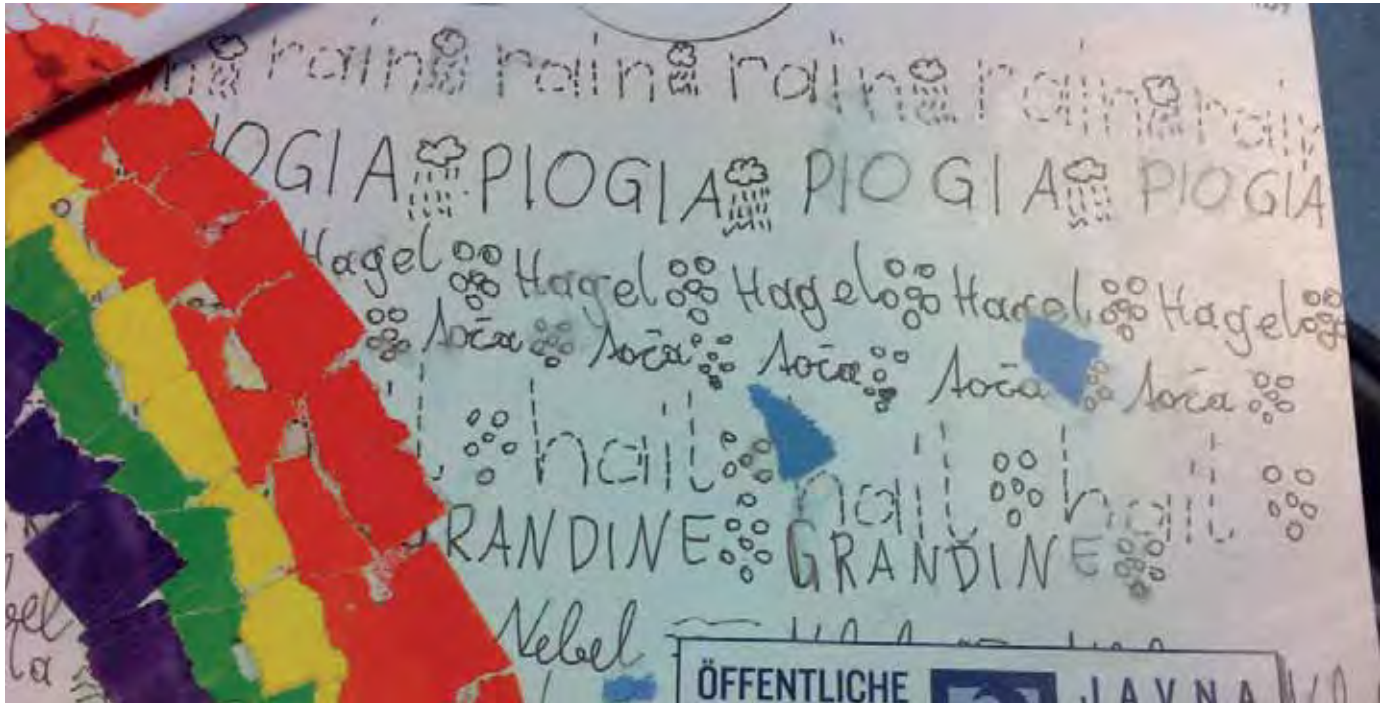 rain rain rain rain
PIOGIA PIOGIA PIOGIA
Hagel Hagel Hagel Hagel Hagel
toča toča toča toča toča
hail hail hail
GRANDINE GRANDINE
Nebel
ÖFFENTLICHE JAVNA